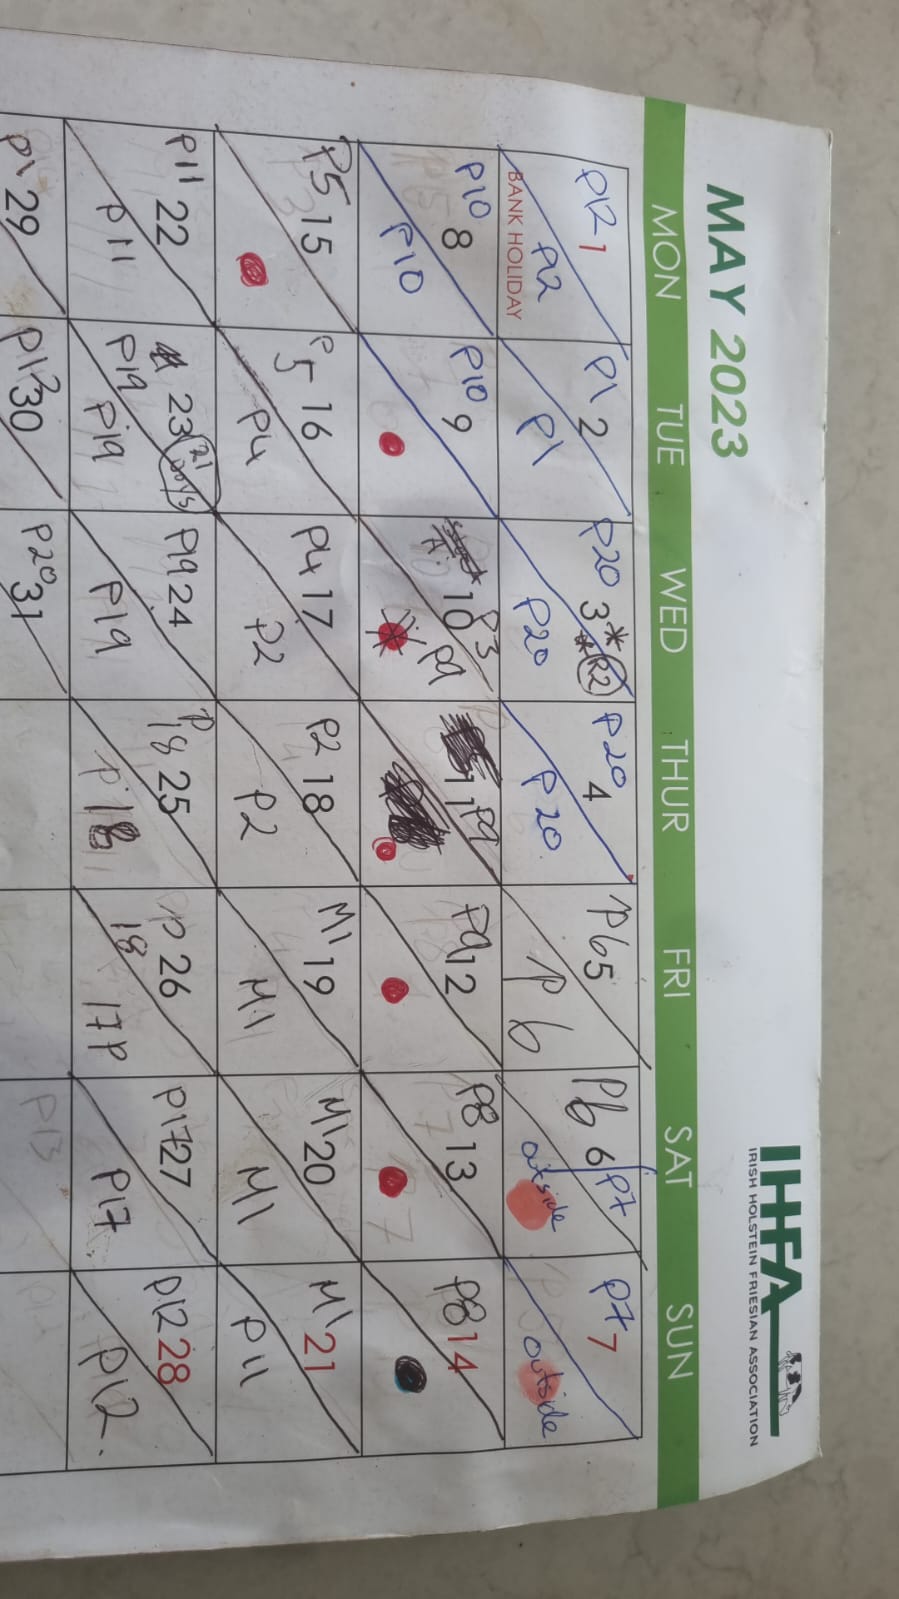 MAY 2023
IHFA
IRISH HOLSTEIN FRIESIAN ASSOCIATION
MON TUE WED THUR FRI SAT SUN
P12 1 P12
BANK HOLIDAY
P1 2 P1
P20 3 * * R2 P20
P20 4 P20
P6 5 P6
P6 6 P7 outside
P7 7 outside
P10 8 P10
P10 9
10 P3 P9
11 P9
P9 12
P8 13
P8 14
P5 15
P5 16 P4
P4 17 P2
P2 18 P2
M1 19 M1
M1 20 M1
M1 21 P11
P11 22 P11
23 21 Days P19 P19
P19 24 P19
P18 25 P18
P18 26 17P
P17 27 P17
P12 28 P12.
P1 29
30
P20 31
P13